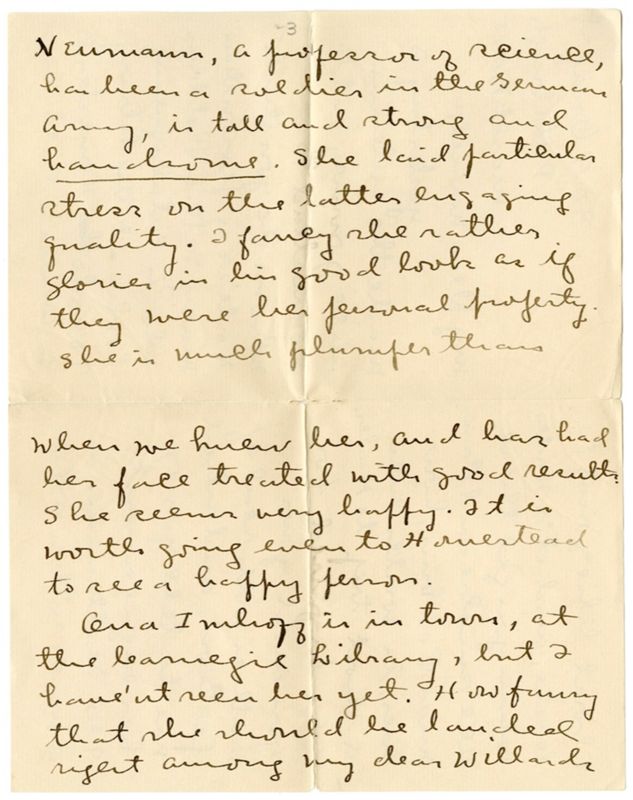 -3
Neumann, a professor of science,
has been a soldier in the German
Army, is tall and strong and
handsome. She laid particular
stress on the latter engaging
quality. I fancy she rather
glories in his good looks as if
they were her personal property.
She is much plumper than
when we knew her, and has had
her face treated with good results.
She seems very happy. It is
worth going even to Homestead
to see a happy person.
Ena Imhoff is in town, at
the Carnegie Library, but I
have'nt seen her yet. How funny
that she should be landed
right among my dear Willards